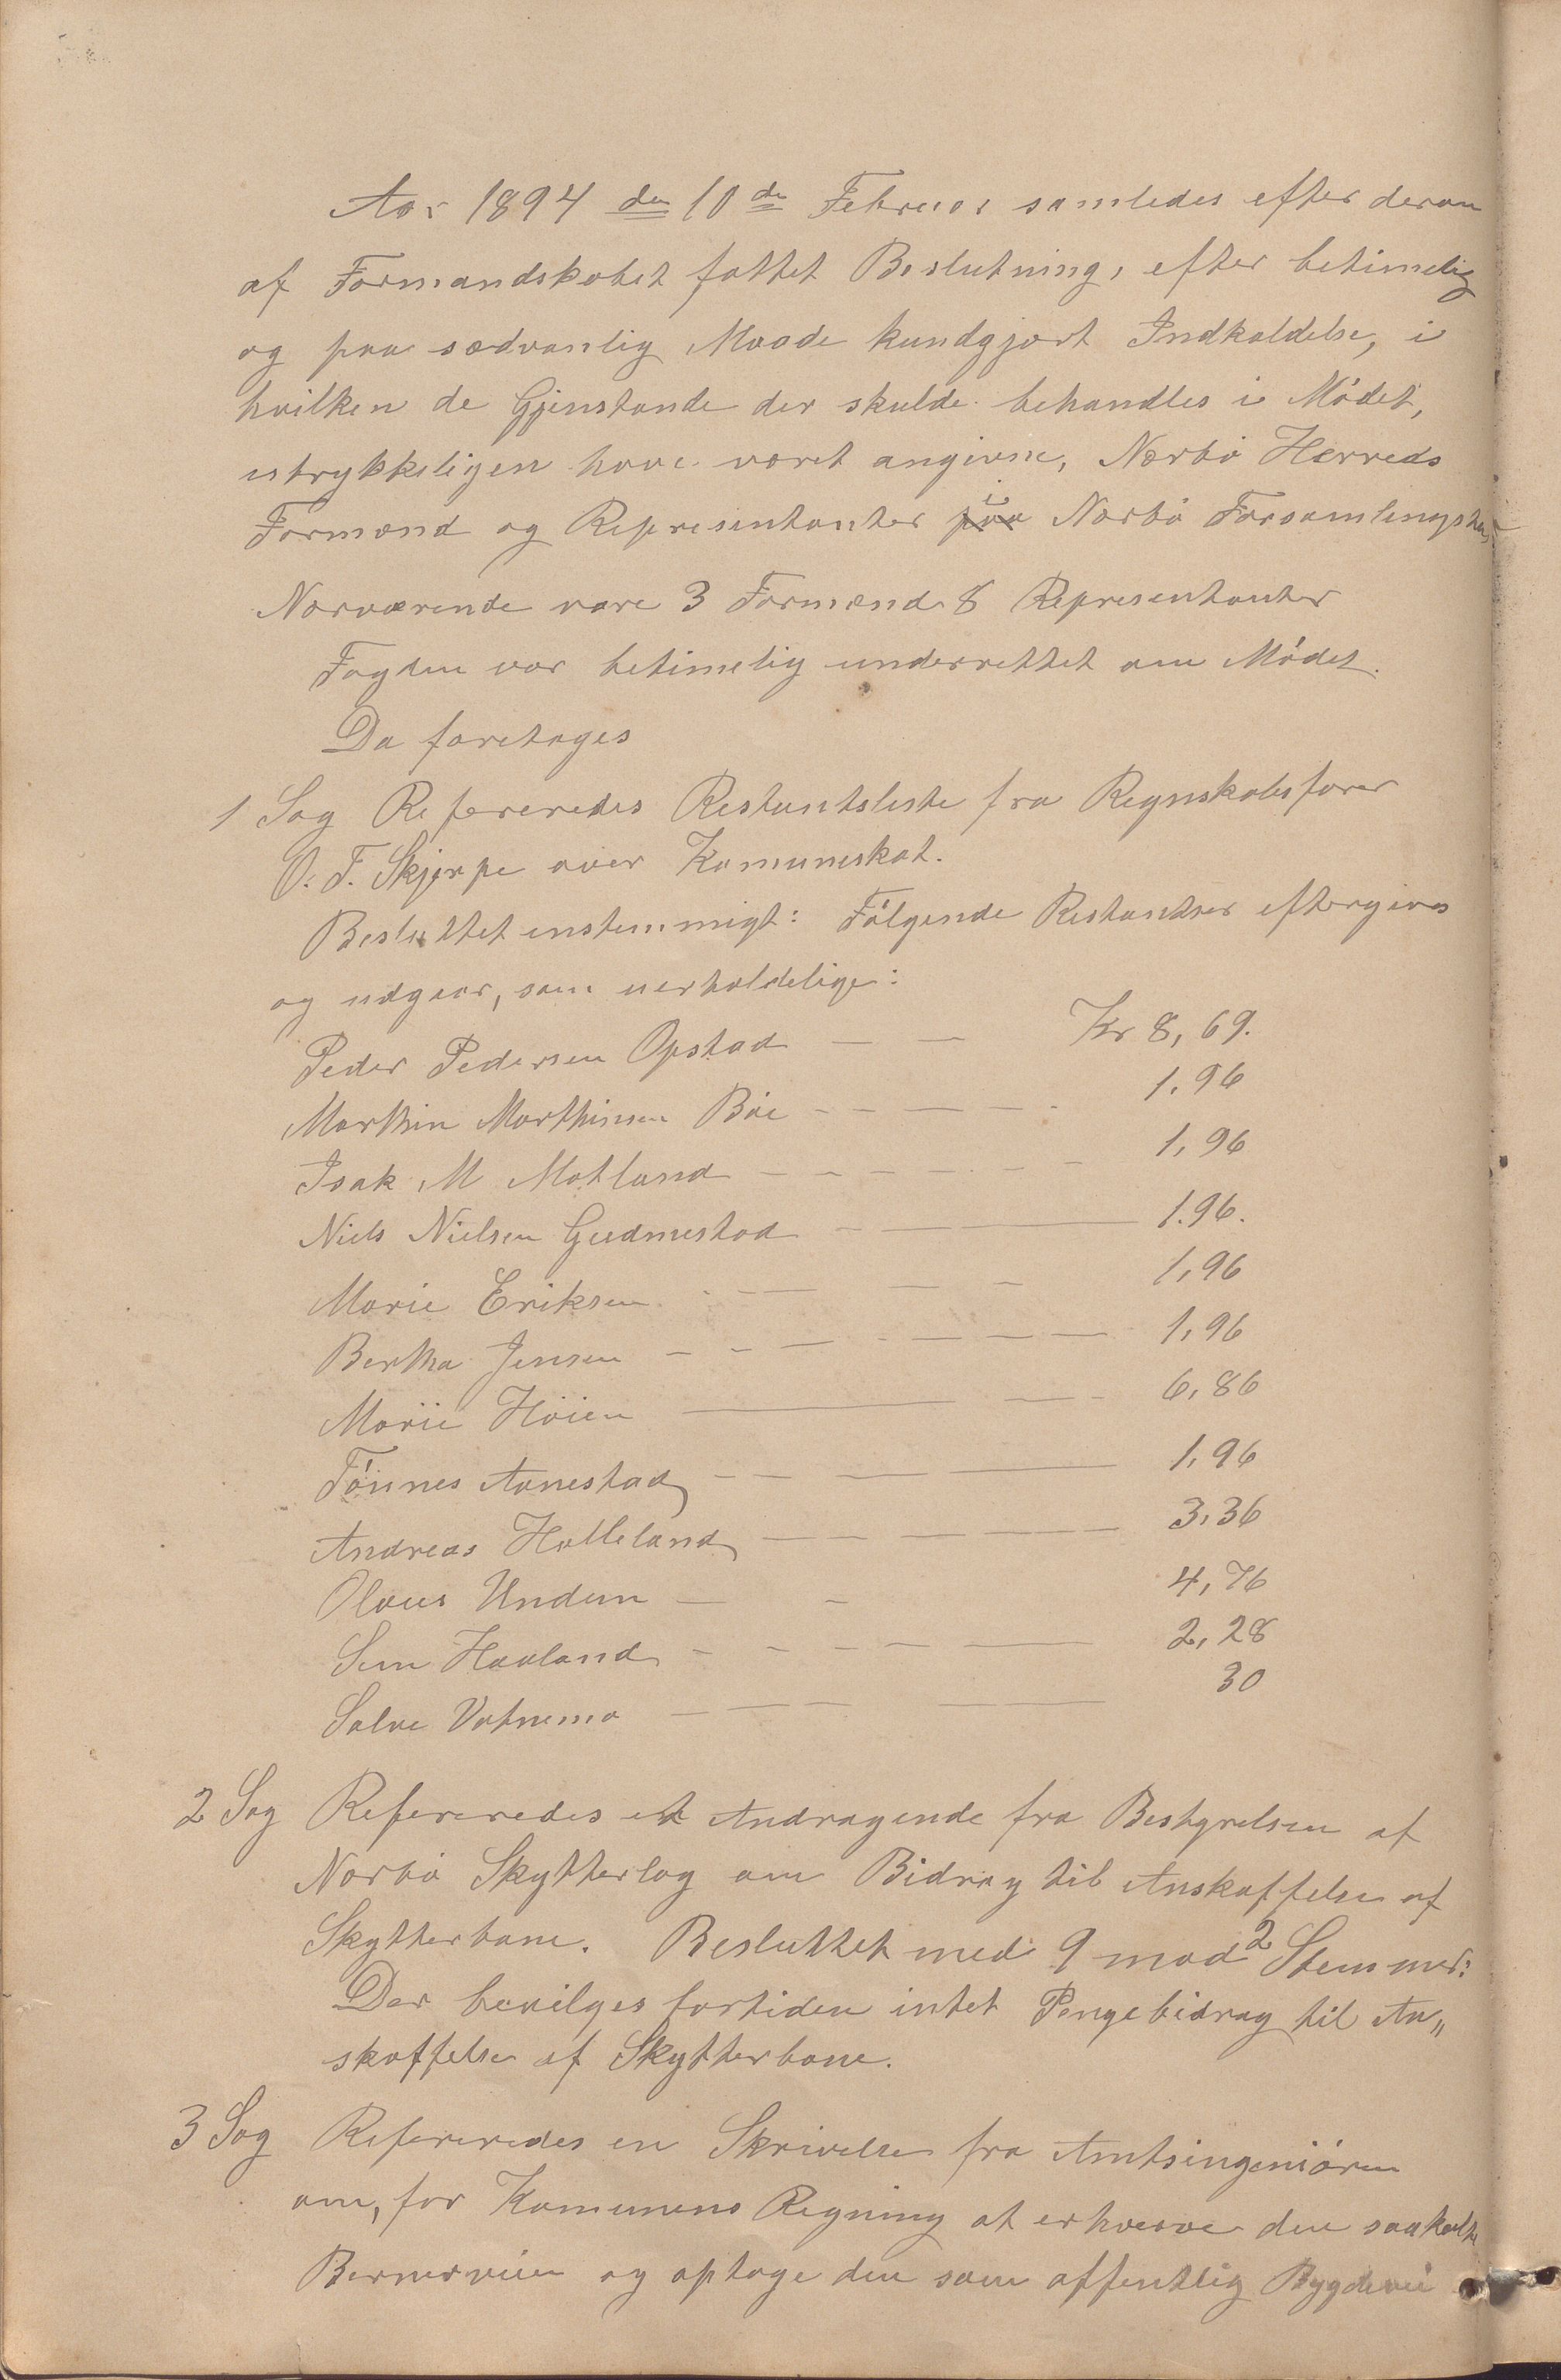 Aar 1894 den 10de Februar samledes efter derom
af Formandskabet fattet Beslutning, efter betimelig
og paa sædvanlig Maade kundgjort Indkaldelse, i
hvilken de Gjenstande der skulde behandles i Mødet,
utrykkeligen have været angivne, Nærbø Herreds
Formænd og Representanter i Nærbø Forsamlingshus
Nærværende vare 3 Formænd 8 Representanter
Fogden var betimelig underrettet om Mødet.
Da foretages
1 Sag Refereredes Restantsliste fra Regnskabsfører
O. F. Skjerpe over Komuneskat.
Besluttet enstemmigt: Følgende Restantser eftergives
og udgaar, som uerholdelige:
Peder Pedersen Opstad — — Kr 8,69.
Marthin Marthinsen Bøe - - — — - 1,96
Isak M Motland — - - — - - - 1,96
Niels Nielsen Gudmestad - — — 1.96.
Marie Eriksen - - — — - 1,96
Bertha Jensen - - — - — — — 1,96
Marie Høien — — - 6,86
Tønnes Aanestad - — — — 1,96
Andreas Hatteland — — — — — 3,36
Olaus Undem — - 4,76
Sem Haaland - - - — — 2,28
Salve Vatnemo — — — — 30
2 Sag Refereredes et Andragende fra Bestyrelsen af
Nærbø Skytterlag om Bidrag til Anskaffelse af
Skytterbane. Besluttet med 9 mod 2 Stemmer:
Der bevilges fortiden intet Pengebidrag til An„
skaffelse af Skytterbane.
3 Sag Refereredes en Skrivelse fra Amtsingeniøren
om, for Komunens Regning at erhverve den saakaldte
Bernerveien og optage den som offentlig Bygdevei